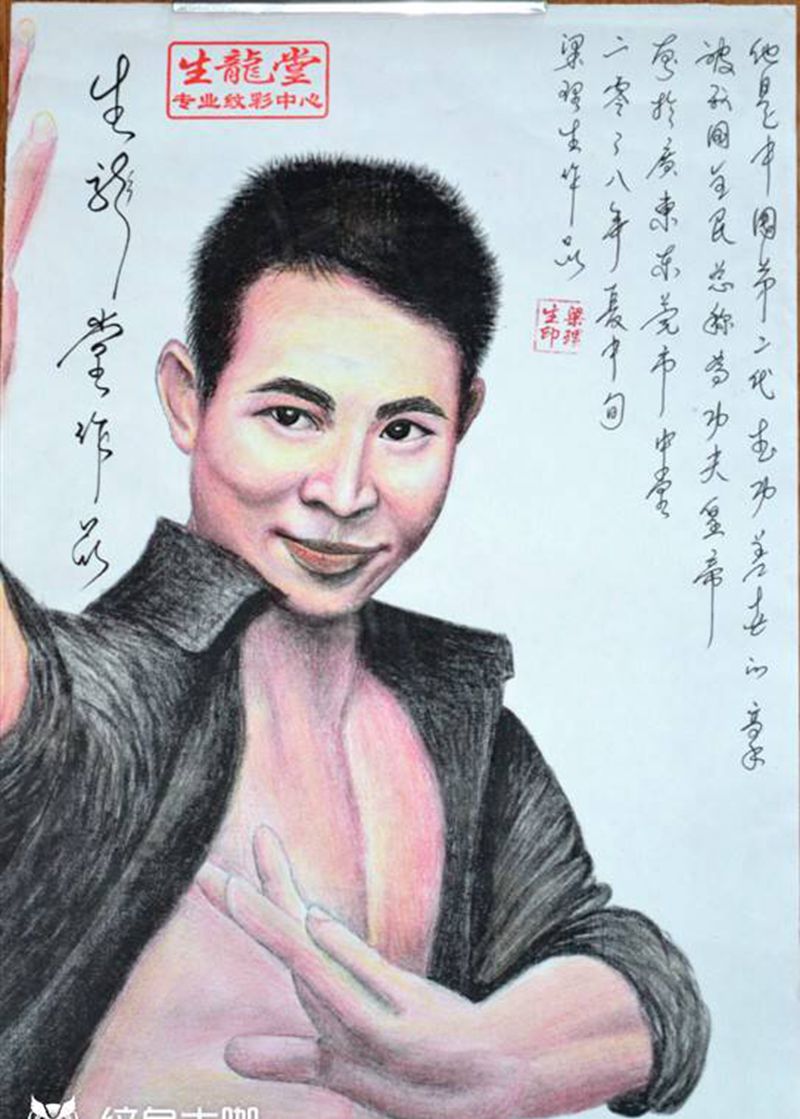 他是中国第二代武功善去的高手
被我国全民总称为功夫皇帝
画於廣東东莞市中堂
二零零八年夏中旬
梁理生作品
梁理
生印
生龍堂
专业纹彩中心
生龙堂作品